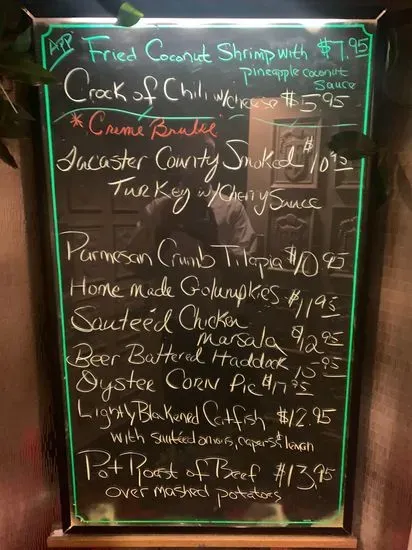 APP Fried Coconut Shrimp with $7.95
pineapple coconut
sauce
Crock of Chili w/cheese $5.95
* Creme Brulee
Lancaster County Smoked $10.95
Turkey w/Cherry Sauce
Parmesan Crumb Tilapia $10.95
Home made Golumpkies $11.95
Sauteéd Chicken
Marsala $12.95
Beer Battered Haddock 10.95
Oyster Corn Pie
Lightly Blakened Catfish $12.95
with sauteéd onions, capers &
Pot Roast of Beef $13.95
over mashed potatoes